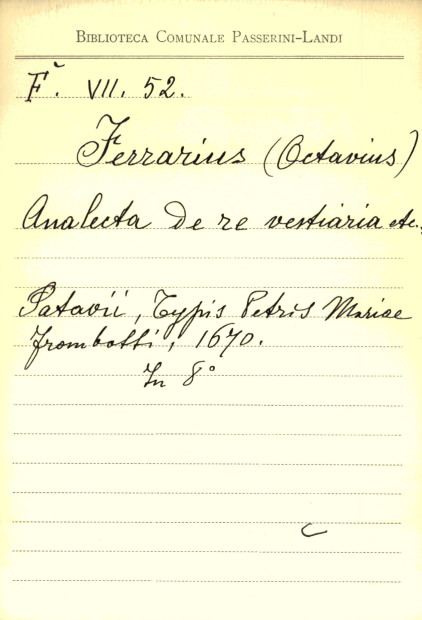 BIBLIOTECA COMUNALE PASSERINI-LANDI
F. VII. 52.
Ferrarius (Octavius)
Analecta De re vestiaria etc.,
Patavii, Typis Petris Mariae
Frombotti, 1670.
In 8°
C